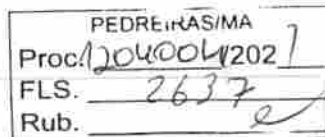 PEDREIRAS/MA
Proc. 1204004/2021
FLS. 2637
Rub.